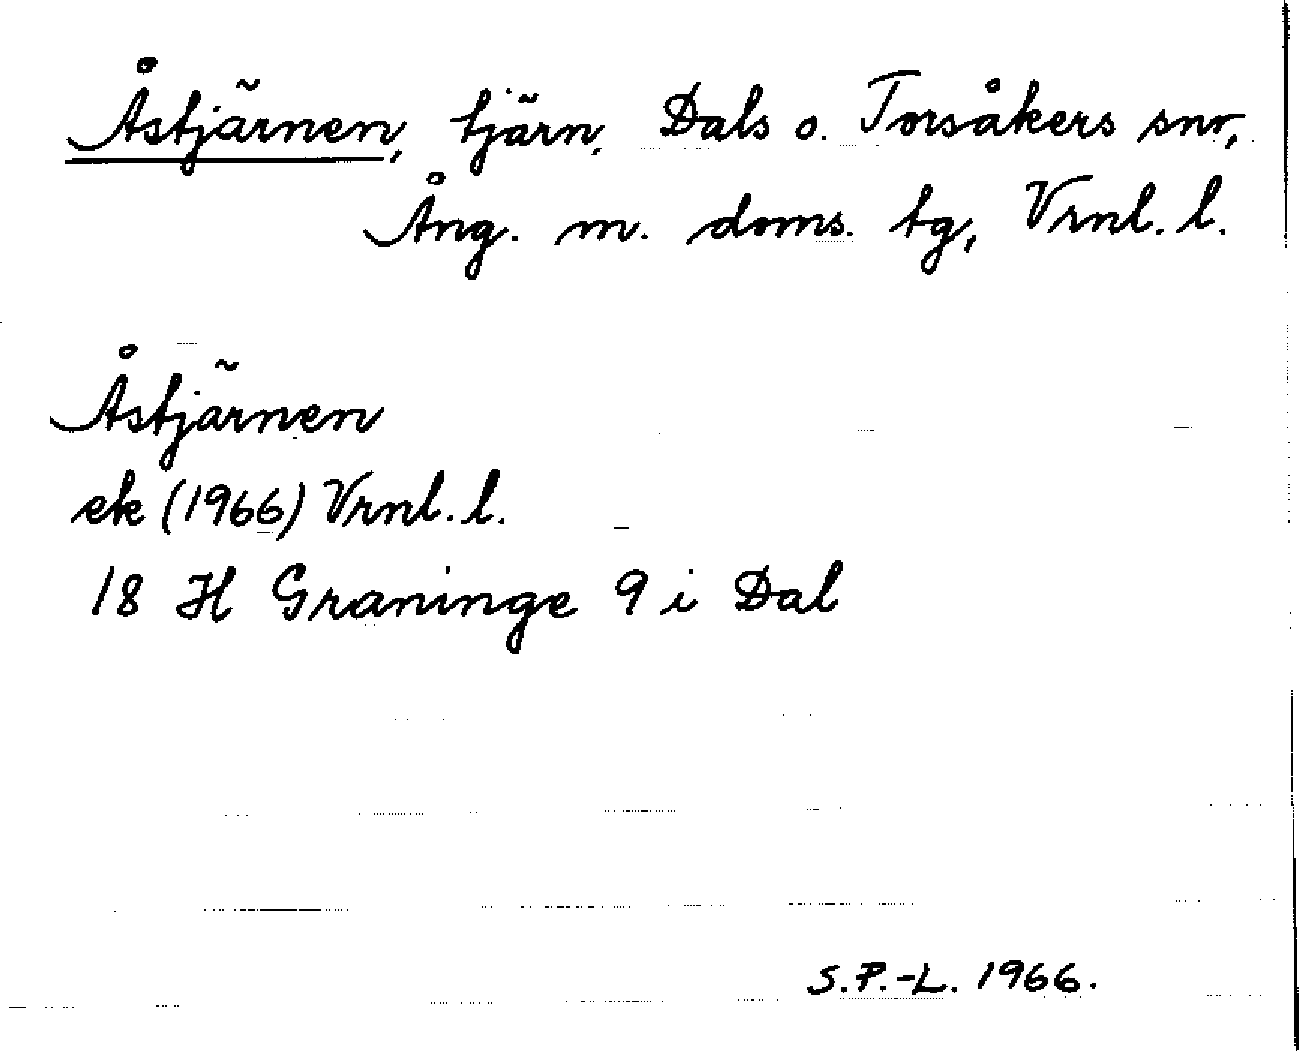 Åstjärnen, tjärn, Dals o. Torsåkers snr,
Ång. m. doms. tg, Vrnl. l.
Åstjärnen
ek (1966) Vrnl. l.
18 H Graninge 9 i Dal
S.P.-L. 1966.